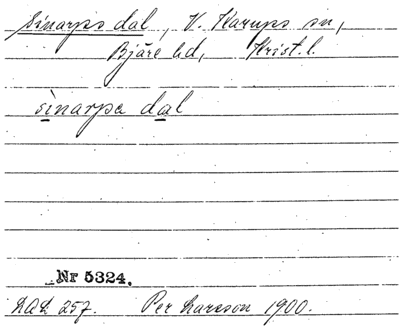 Sinarps dal, V. Karups sn,
Bjäre hd, Krist. l.
sìnarpa dal
Nr 5324.
LAL 257. Per Larsson 1900.